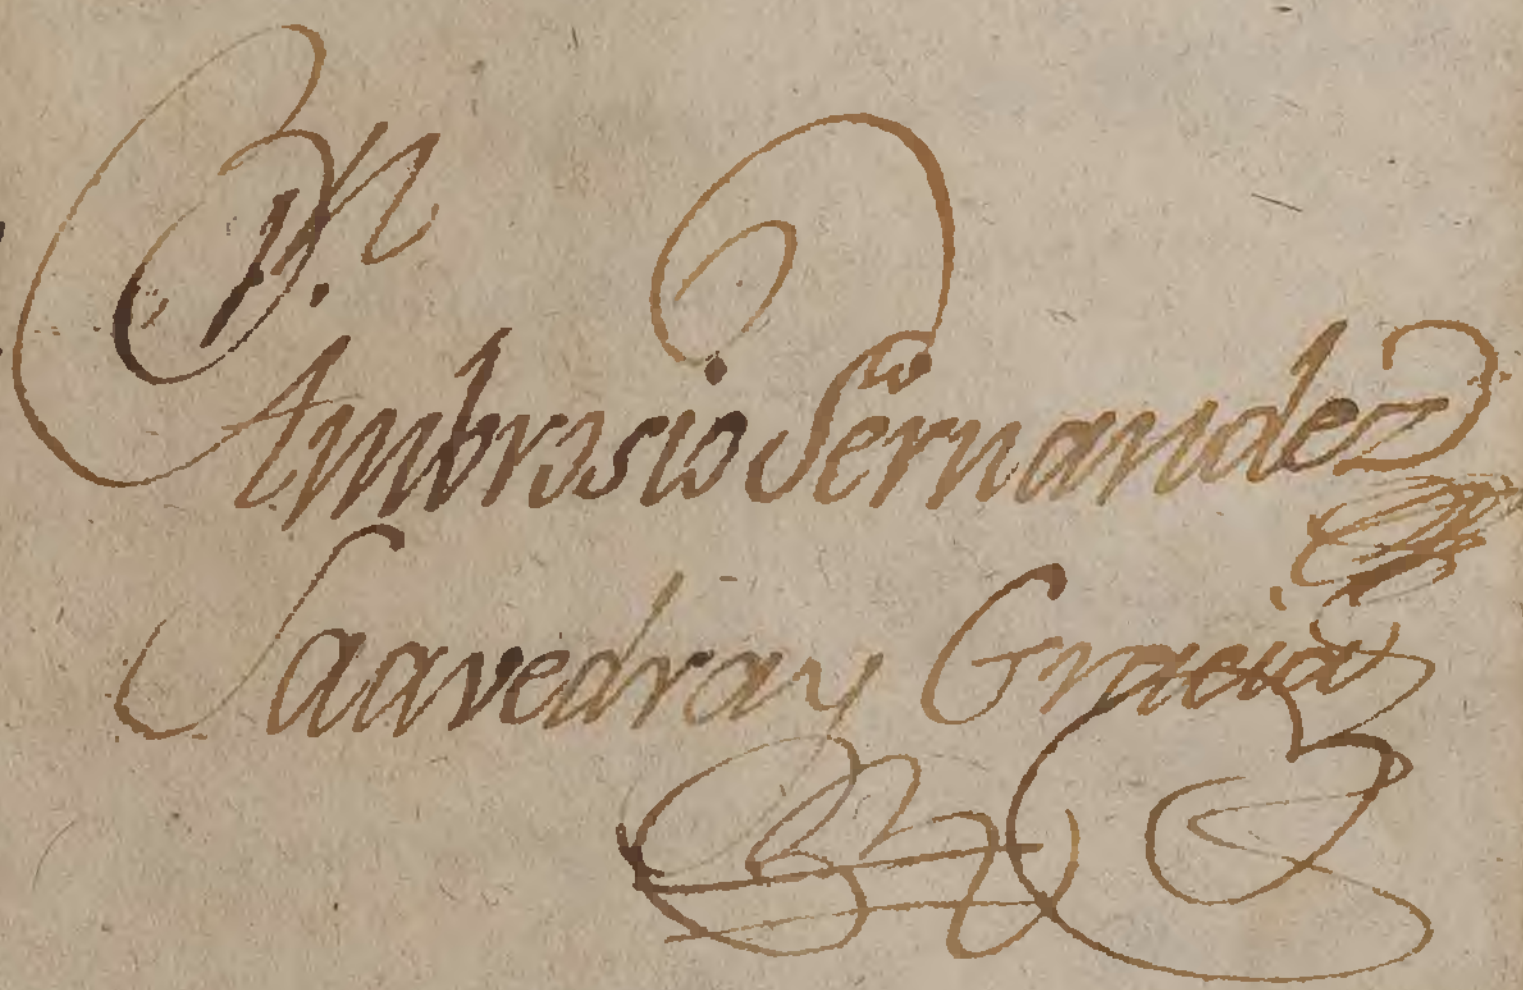 Dn.
Ambrosio Fernandez
Saavedra y Gracia